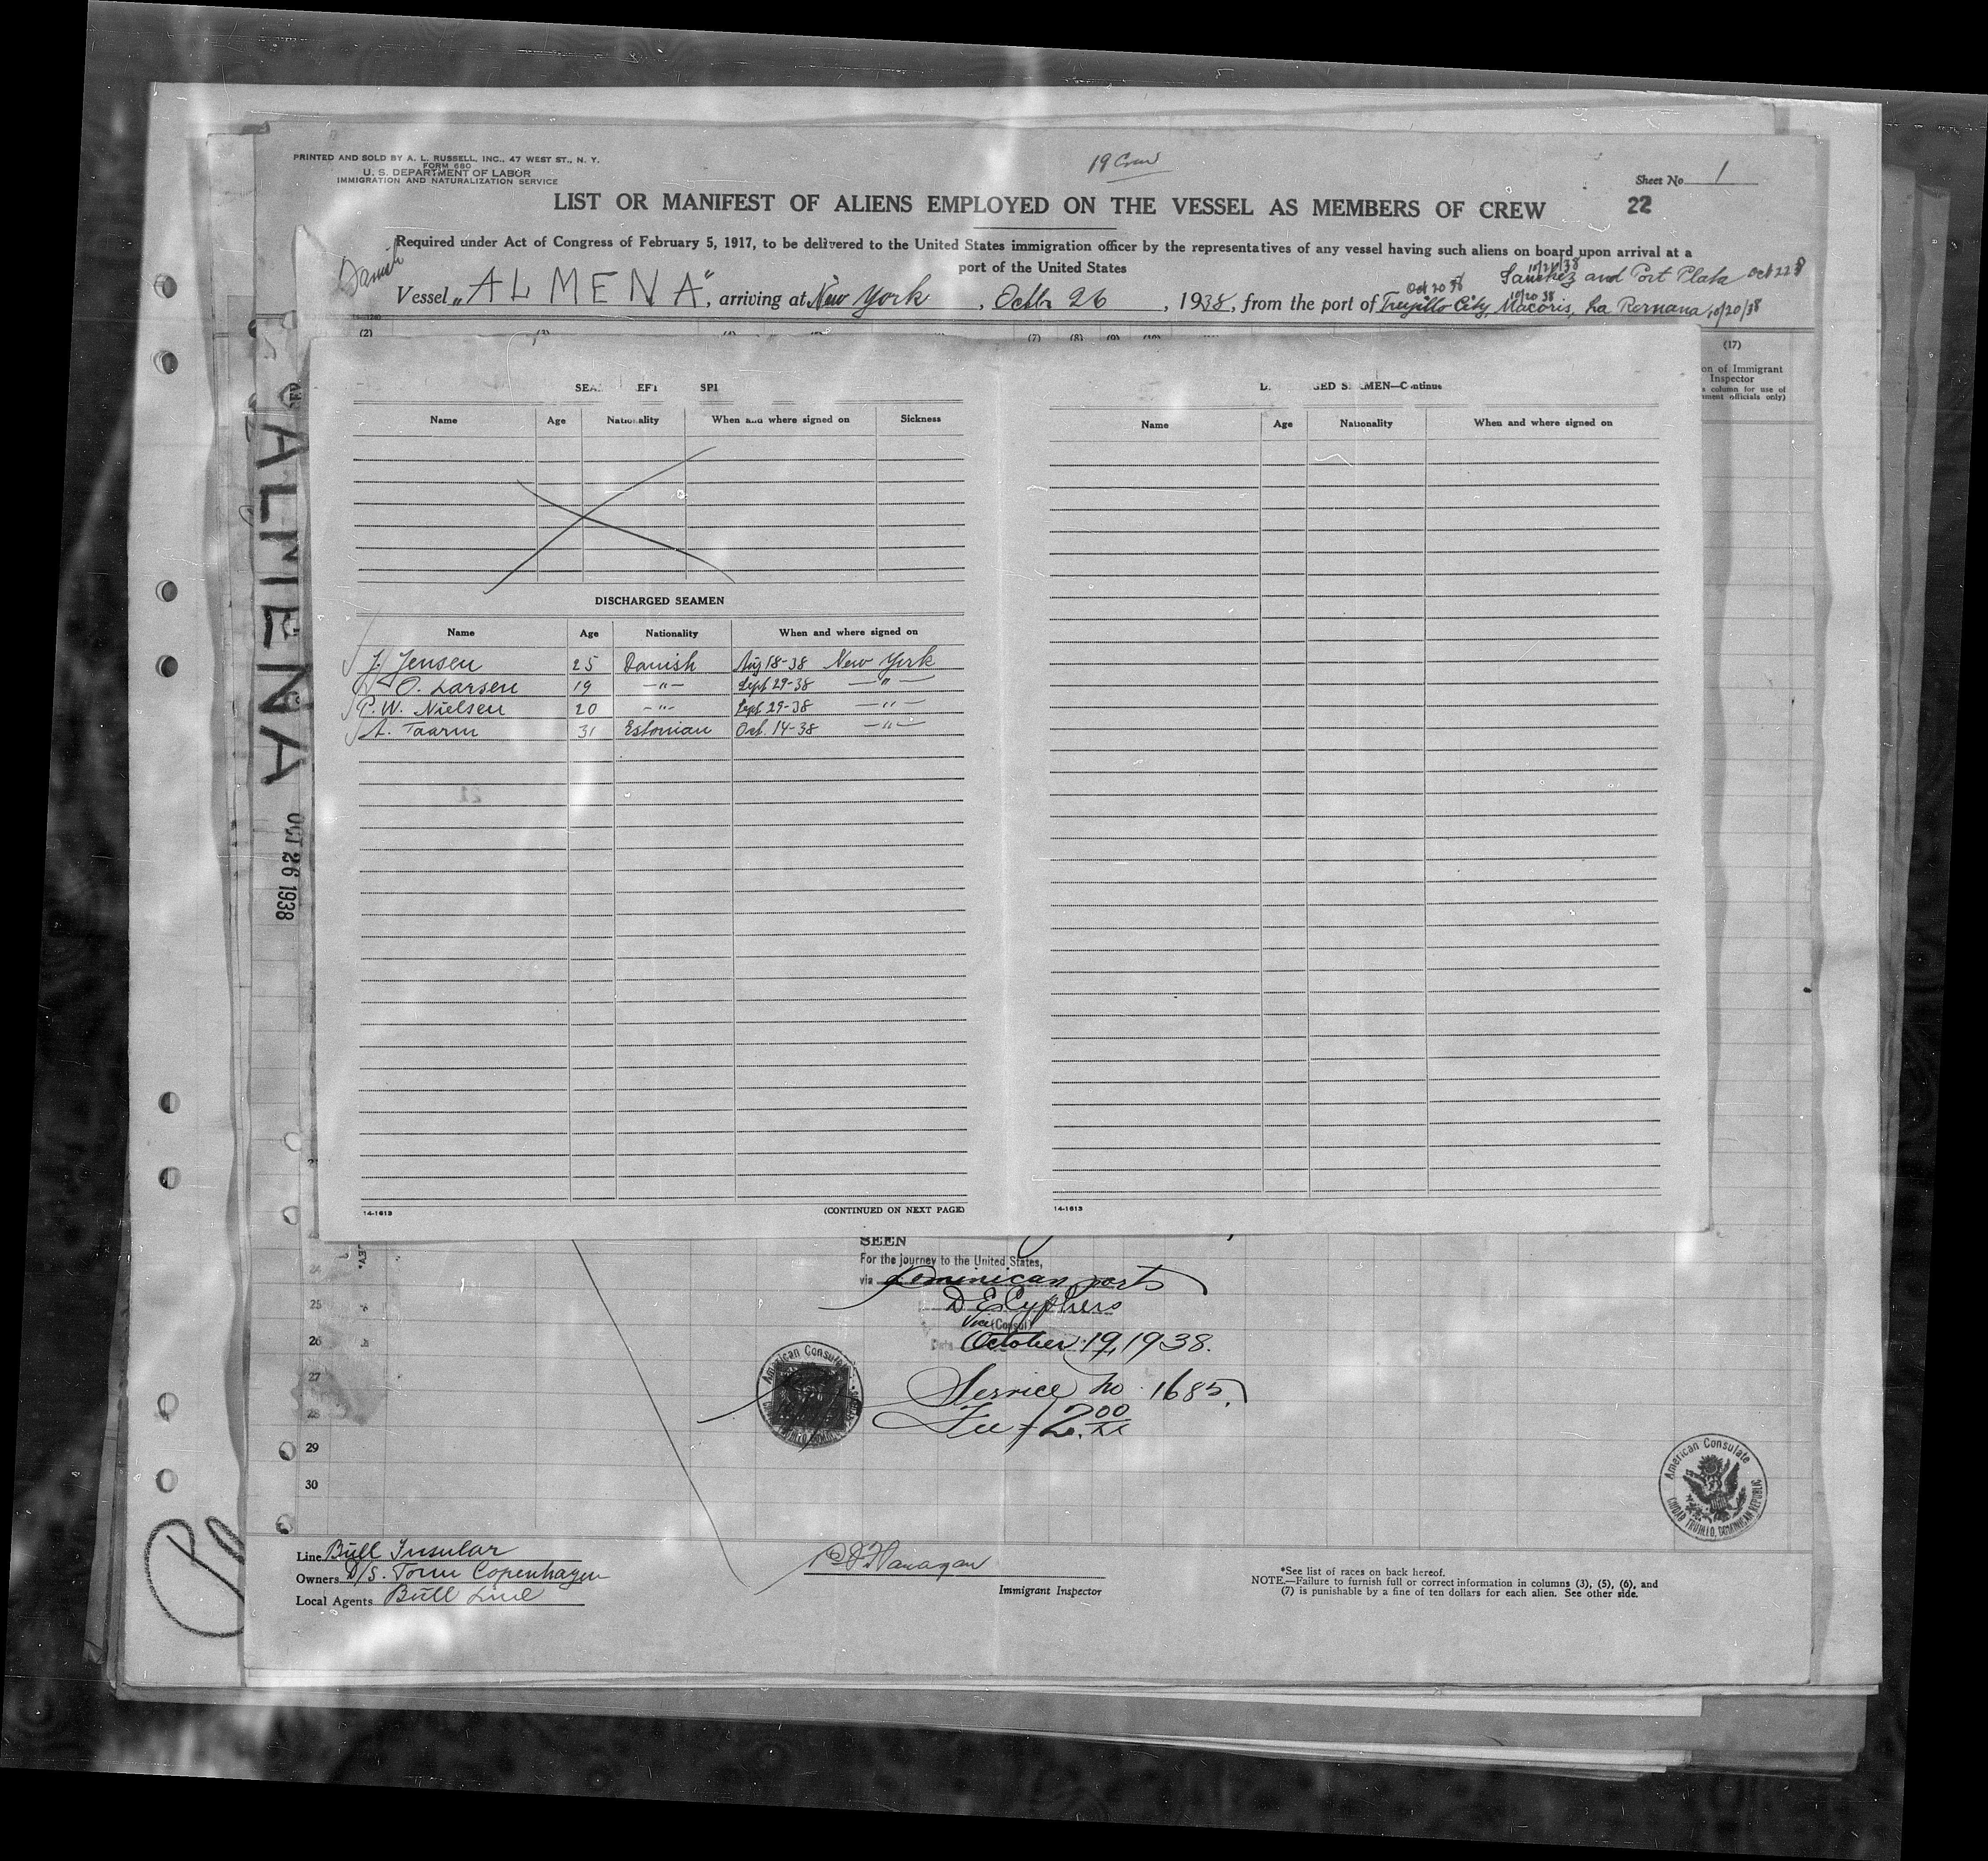 PRINTED AND SOLD BY A. L. RUSSELL, INC., 47 WEST ST., N. Y.
FORM 680
U. S. DEPARTMENT OF LABOR
IMMIGRATION AND NATURALIZATION SERVICE
19 Crew
Sheet No. 1
LIST OR MANIFEST OF ALIENS EMPLOYED ON THE VESSEL AS MEMBERS OF CREW
22
Required under Act of Congress of February 5, 1917, to be delivered to the United States immigration officer by the representatives of any vessel having such aliens on board upon arrival at a
port of the United States
Danish
10/21/38
Sanchez and Port Plata Oct 22 8
Oct 20 38 10/20 38
Vessel "ALMENA", arriving at New York, Octbr 26, 1938, from the port of Trujillo City, Macoris, La Romana 10/20/38
(2) (7) (8) (9) (10) (17)
on of Immigrant
Inspector
column for use of
officials only)
Name Age Nationality When and where signed on Sickness
GED SEAMEN—Continue
Name Age Nationality When and where signed on
DISCHARGED SEAMEN
Name Age Nationality When and where signed on
J. Jensen 25 Danish Aug 18-38 New York
O. Larsen 19 —"— Sept 29-38 —"—
P. W. Nielsen 20 —"— Sept 29-38 —"—
A. Taarm 31 Estonian Oct. 14-38 —"—
21
14-1613 (CONTINUED ON NEXT PAGE)
14-1613
ALMENA
OCT 26 1938
SEEN
For the journey to the United States,
via Dominican ports
D E Cyphers
Vice Consul
Date October 19, 1938.
Service no. 1685
Fee $2.00
24
25
26
27
28
29
30
American Consulate
American Consulate
CIUDAD TRUJILLO, DOMINICAN REPUBLIC
Line Bull Insular
Owners D/S. Torm Copenhagen
Local Agents Bull Line
Flanagan
Immigrant Inspector
*See list of races on back hereof.
NOTE.—Failure to furnish full or correct information in columns (3), (5), (6), and
(7) is punishable by a fine of ten dollars for each alien. See other side.